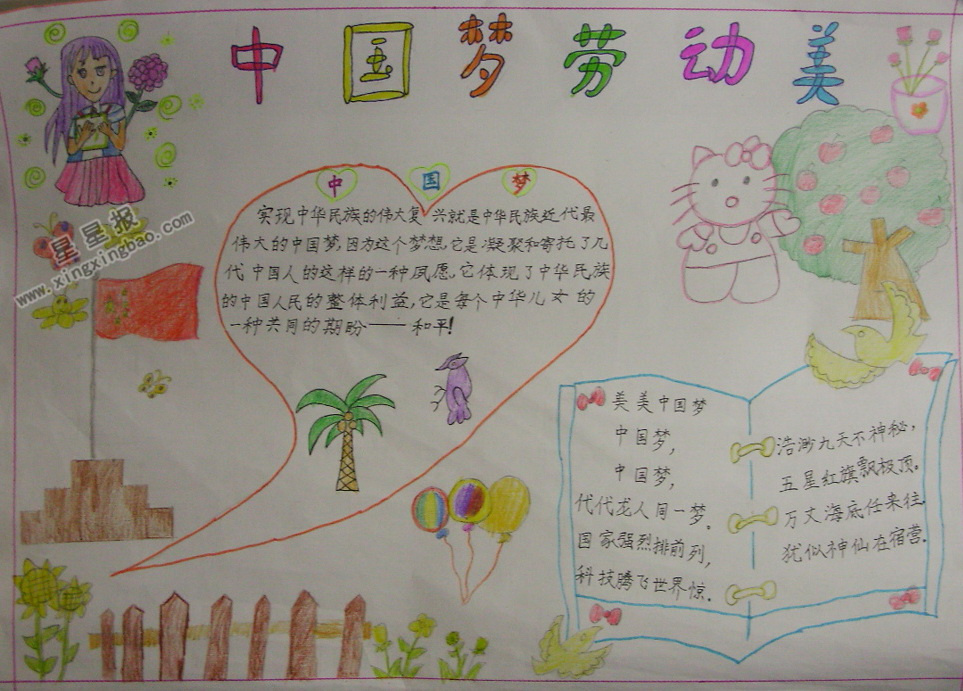 中国梦劳动美
星星报
www.xingxingbao.com
中 国 梦
实现中华民族的伟大复兴就是中华民族近代最
伟大的中国梦,因为这个梦想,它是凝聚和寄托了几
代中国人的这样的一种夙愿,它体现了中华民族
的中国人民的整体利益,它是每个中华儿女的
一种共同的期盼——和平!
美美中国梦
中国梦,
中国梦,
代代龙人同一梦。
国家强烈排前列,
科技腾飞世界惊.
浩渺九天不神秘,
五星红旗飘极顶.
万丈海底任来往
犹似神仙在宿营.